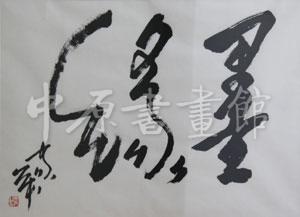 墨緣
中原書畫館